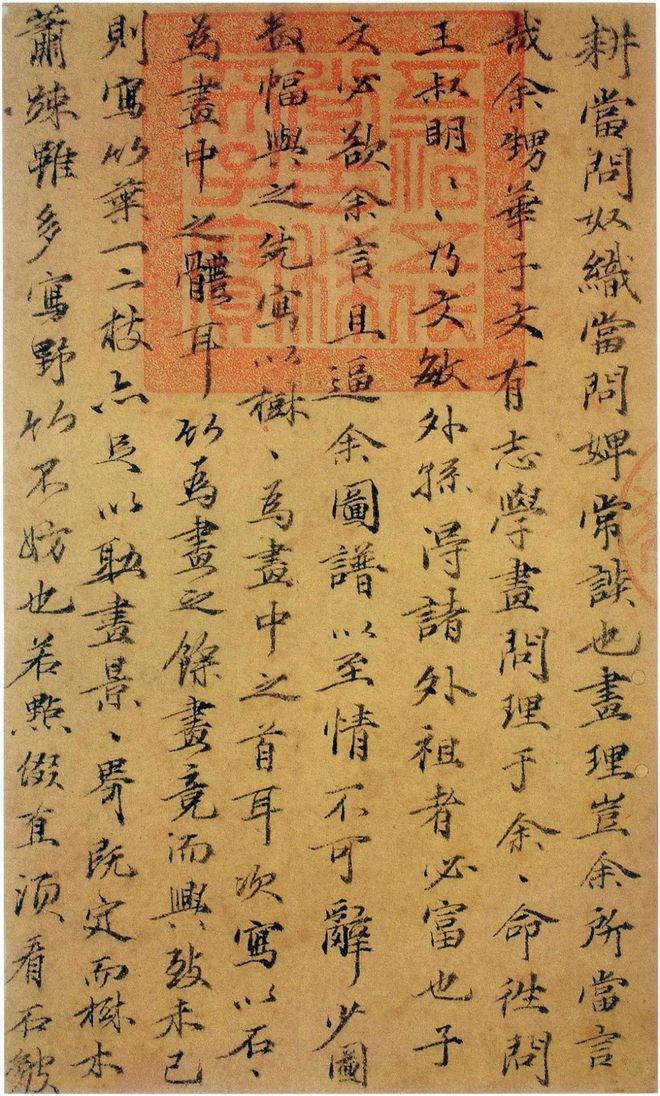 耕當問奴織當問婢常談也畫理豈余所當言
哉余甥華子文有志學畫問理于余〻命往問
王叔明〻乃文敏外孫得諸外祖者必富也子
文必欲余言且逼余圖譜以至情不可辭少圖
數幅與之先寫以樹〻為畫中之首耳次寫以石〻
為畫中之體耳竹為畫之餘畫竟而興致未已
則寫竹葉一二枝亦足以助畫景〻界既定而樹木
蕭踈雖多寫野竹不妨也若點綴直須看石皴
五福五代
堂古稀
天子寶